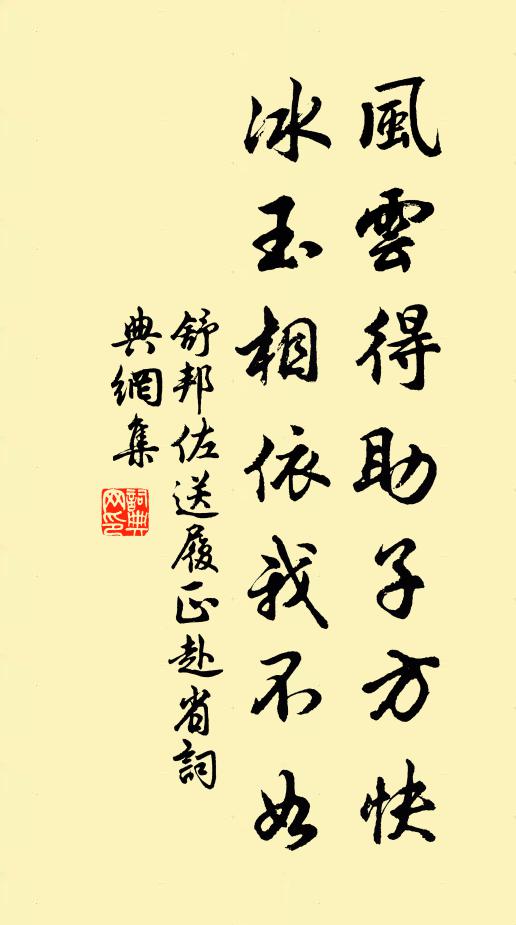 風雲得助子方快
冰玉相依我不如
舒邦佐送履正赴省詞
典網集
詞典網印